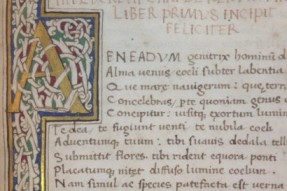 LIBER PRIMVS INCIPIT
FELICITER
AENEADUM genitrix hominũ d
Alma uenus coeli subter Labentia
Que mare nauigerum: que terra
Concelebras per quoniam genus
Concipitur: uisitq; exortum lumin
Te dea te fugiunt uenti te nubila coeli
Aduentumq; tuum: tibi suauis dedala tell
Summittit flores tibi rident equora ponti
Placatumq; nitet diffuso lumine coelum
Nam simul ac species patefacta est uerna